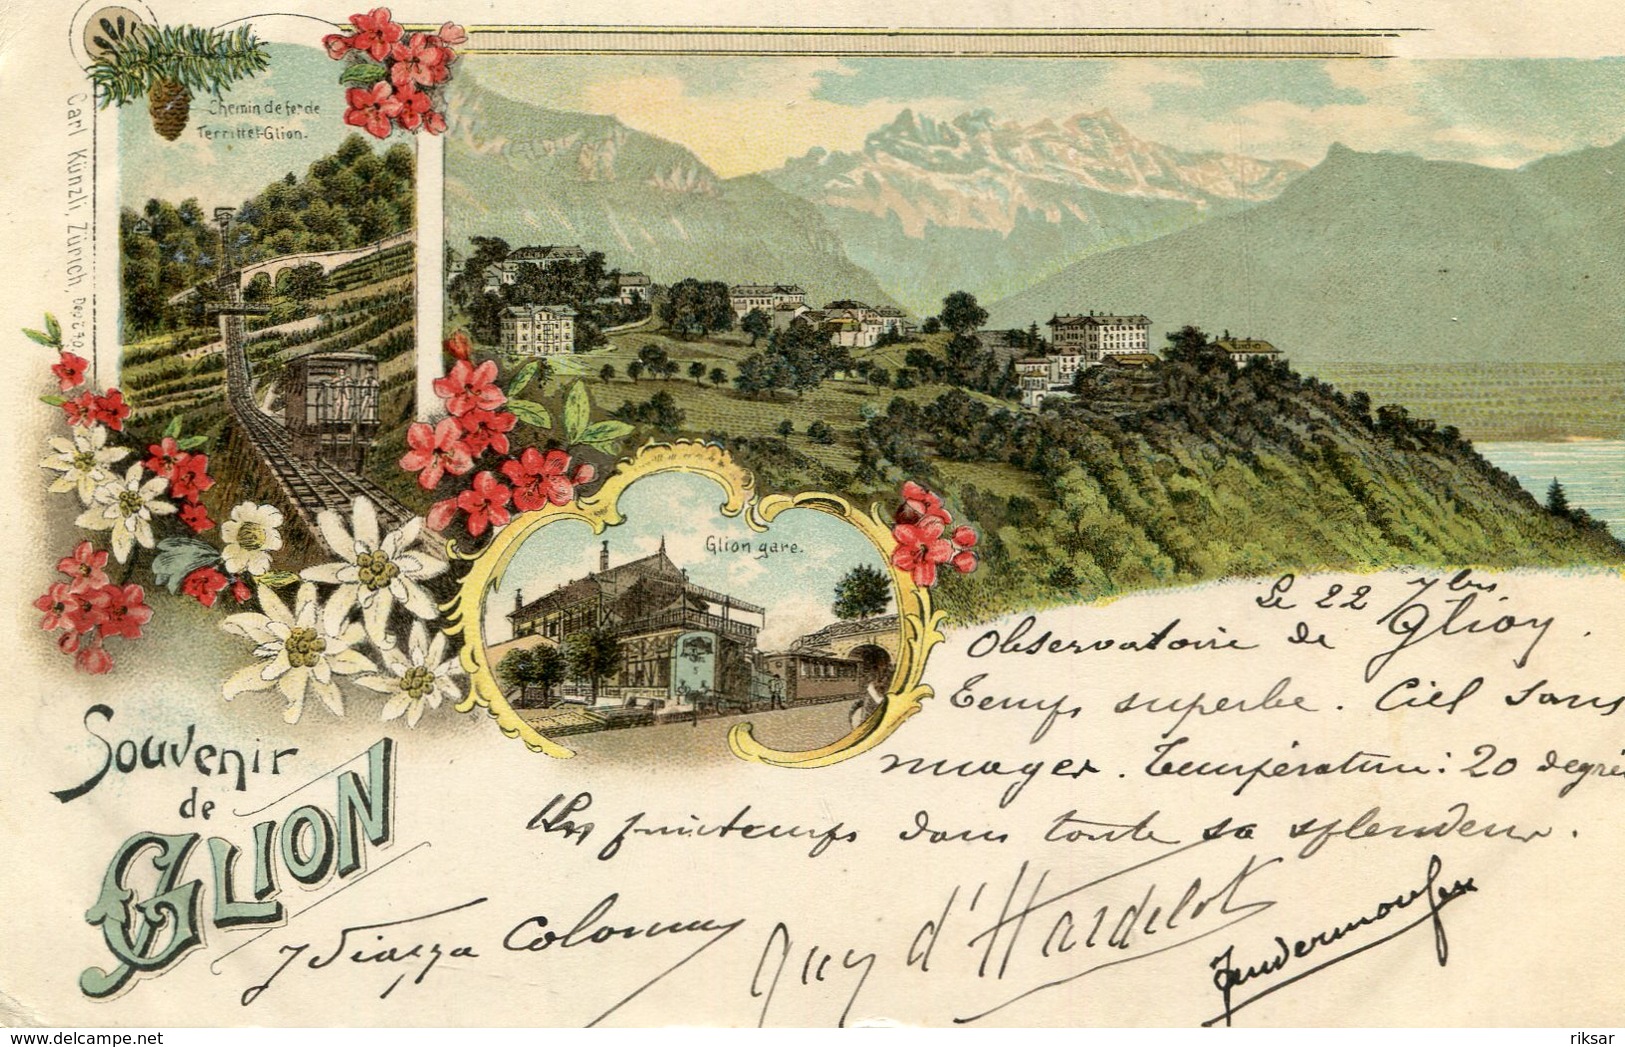 Chemin de fer de
Territtet-Glion.
Carl Künzli, Zürich, Dep. 270.
Glion gare.
Souvenir
de
GLION
Le 22 7bre
Observatoire de Glion.
Temps superbe. Ciel sans
nuages. Température: 20 degrés
printemps dans toute sa splendeur.
Colonna
Guy d'Hardelot
riksar